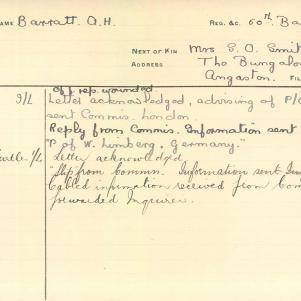 NAME Barratt. A.H. REG. &C. 50th. Ba
NEXT OF KIN Mrs E. A. Smit
ADDRESS The Bungalo
Angaston. FI
Off rep. wounded.
3/L Letter acknowledged, advising of P/
sent Commis. London.
Reply from Commis. Information sent
"P. of W. Limberg, Germany."
ville. 1/L Letter acknowledged
Slip from Commn. Information sent
Cabled information received from Com
forwarded Inquirer.